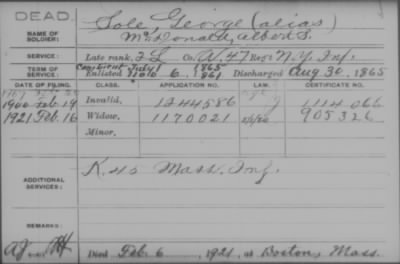 DEAD.
Sole George (alias)
NAME OF SOLDIER:
McDonald, Albert S.
SERVICE: Late rank, 2 L Co. A. 47 Reg't N.Y. Inf.
TERM OF SERVICE: July 1 1865
Enlisted Nov. 6, 1861 Discharged Aug 30, 1865
DATE OF FILING. CLASS. APPLICATION NO. LAW. CERTIFICATE NO.
1900 Feb. 19 Invalid, 1244586 1114066
1921 Feb. 16 Widow, 1170021 905326
Minor,
ADDITIONAL SERVICES: K. 45 Mass. Inf.
REMARKS:
Died Feb. 6, 1921, at Boston, Mass.